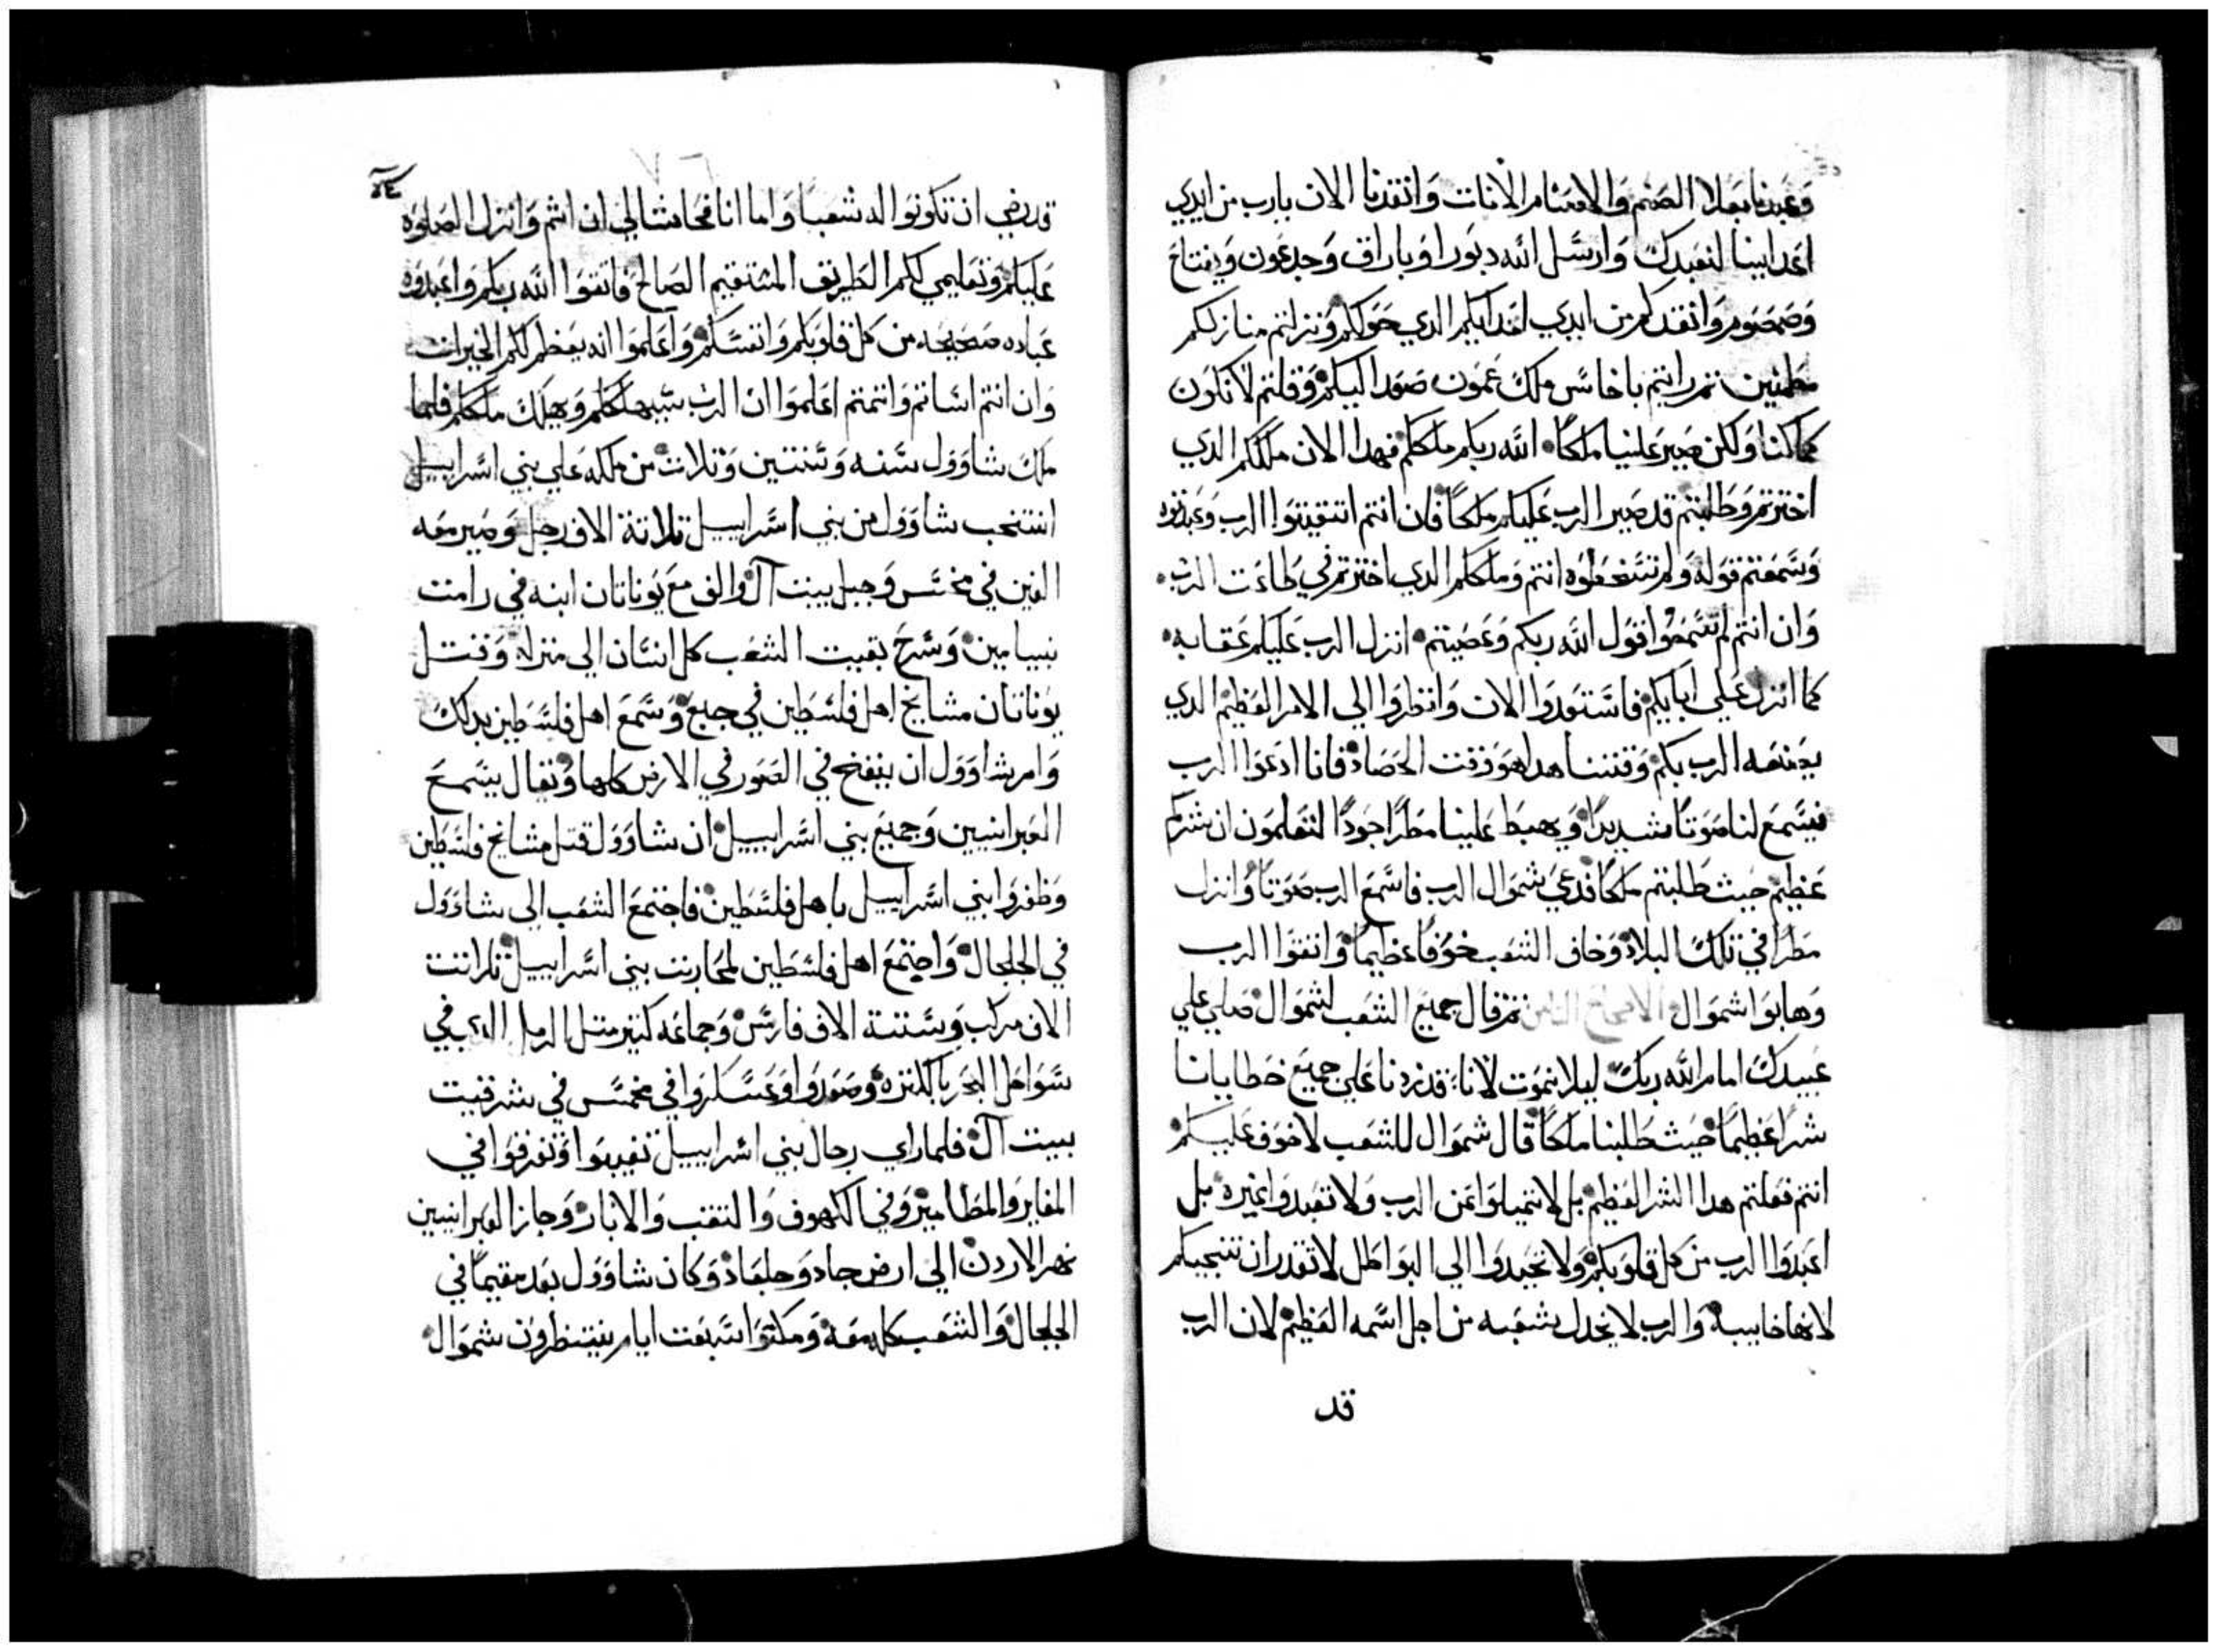 وعبدنا بعلا الصنم والاصنام الاناث وانقدنا الان يارب من ايدي
اعداينا لنعبدك وارسل الله دبورا وباراق وجدعون ويفتاح
وصمصوم وانقدكم من ايدي اعدايكم الدي حولكم ونزلتم منازلكم
مطمنين تم رايتم ناحاس ملك عمون صعد اليكم وقلتم لا نكون
كما كنا ولكن صير علينا ملكا الله ربكم ملككم فهدا الان ملككم الدي
اخترتم وطلبتم قد صير الرب عليكم ملكا فان انتم اتقيتوا الرب وعبدتوه
وسمعتم قوله ولم تسخطوه انتم وملككم الدي اخترتم في طاعت الرب
وان انتم لم تسمعوا قول الله ربكم وعصيتم انزل الرب عليكم عقابه
كما انزل علي ابايكم فاستعدوا الان وانظروا الي الامر العظيم الدي
يصنعه الرب بكم وقتنا هدا هو وقت الحصاد فانا ادعوا الرب
فيسمع لنا صوتا شديدا ويهبط علينا مطرا جودا لتعلمون ان شركم
عظيم حيث طلبتم ملكا فدعي شموال الرب فاسمع الرب صوتا وانزل
مطرا في تلك البلاد وخاف الشعب خوفا عظيما واتقوا الرب
وهابوا شموال تم قال جميع الشعب لشموال صلي علي
عبيدك امام الله ربك ليلا نموت لانا قد زدنا علي جميع خطايانا
شرا عظيما حيث طلبنا ملكا قال شموال للشعب لا خوف عليكم
انتم فعلتم هدا الشر العظيم بل لا تميلوا عن الرب ولا تعبدوا غيره بل
اعبدوا الرب من كل قلوبكم ولا تحيدوا الي البواطل لا تقدر ان تنجيكم
لانها خايبه والرب لا يخدل شعبه من اجل اسمه العظيم لان الرب
قد
قد رضي ان تكونوا له شعبا واما انا فحاشا لي ان اثم وانزل الصلوه
عليكم وتعليمي لكم الطريق المستقيم الصالح فاتقوا الله ربكم واعبدوه
عباده صحيحه من كل قلوبكم وانفسكم واعلموا انه يعظم لكم الخيرات
وان انتم اساتم واتمتم اعلموا ان الرب سيهلككم ويهلك ملككم فلما
ملك شاوول سنه وسنتين وتلات من ملكه علي بني اسراييل
انتخب شاوول من بني اسراييل تلاتة الاف رجل وصير معه
الفين في مخمس وجبل بيت آل والف مع يوناتان ابنه في رامت
بنيامين وسرح بقيت الشعب كل انسان الي منزله وقتل
يوناتان مشايخ اهل فلسطين في جبع وسمع اهل فلسطين بدلك
وامر شاوول ان ينفخ في الصور في الارض كلها وتقال يسمع
العبرانيين وجميع بني اسراييل ان شاوول قتل مشايخ فلسطين
وظفروا بني اسراييل باهل فلسطين فاجتمع الشعب الي شاوول
في الجلجال واجتمع اهل فلسطين لمحاربت بني اسراييل تلاتت
الاف مركب وستتة الاف فارس وجماعه كتير متل الرمل الدي في
سواحل البحر بالكتره وصعدوا وعسكروا في مخمس في شرقيت
بيت آل فلما راي رجال بني اسراييل تغيبوا وتفرقوا في
المغاير والمطامير وفي الكهوف والنقب والابار وجاز العبرانيين
نهر الاردن الي ارض جاد وجلعاد وكان شاوول بعد مقيما في
الجلجال والشعب كله معه ومكتوا سبعت ايام ينتظرون شموال